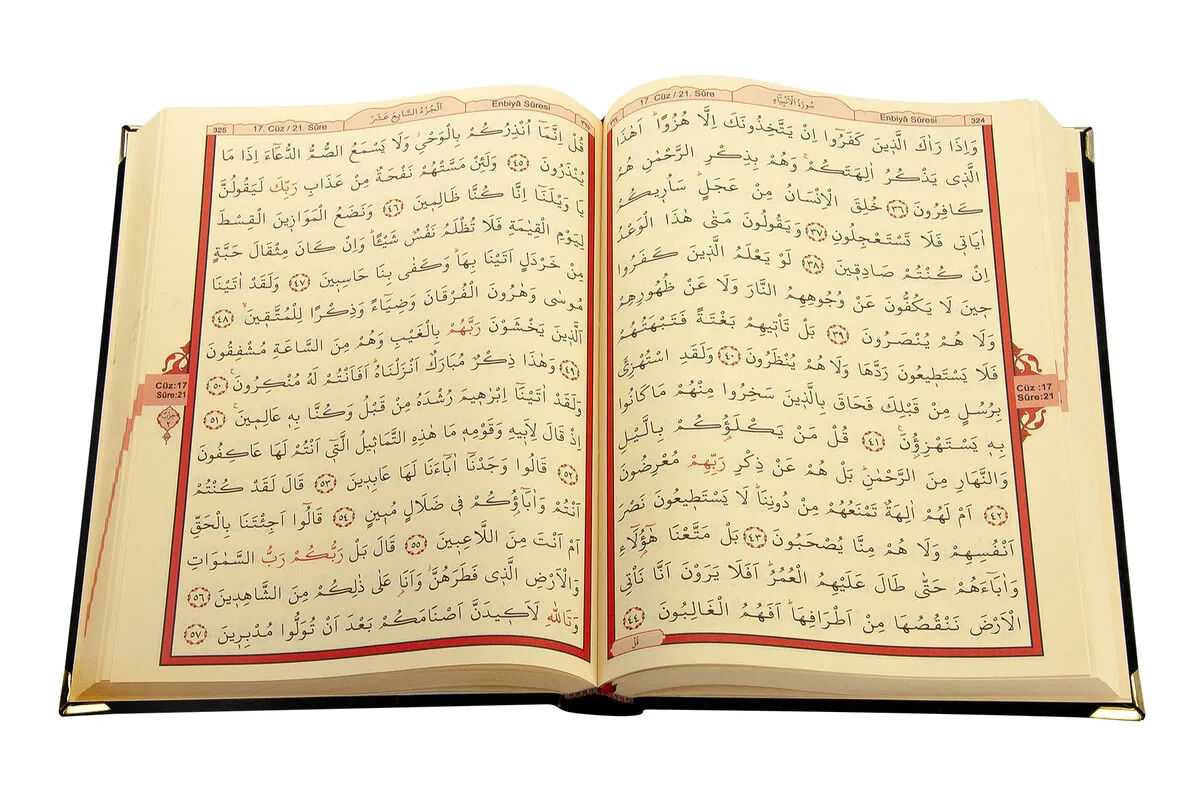 324 Enbiyâ Sûresi سُورَةُ الْاَنْبِيَاءِ 17. Cüz / 21. Sûre
وَاِذَا رَاٰكَ الَّذ۪ينَ كَفَرُٓوا اِنْ يَتَّخِذُونَكَ اِلَّا هُزُواًۜ اَهٰذَا
الَّذ۪ي يَذْكُرُ اٰلِهَتَكُمْۚ وَهُمْ بِذِكْرِ الرَّحْمٰنِ هُمْ
كَافِرُونَ ﴿٣٦﴾ خُلِقَ الْاِنْسَانُ مِنْ عَجَلٍۜ سَاُر۪يكُمْ
اٰيَات۪ي فَلَا تَسْتَعْجِلُونِ ﴿٣٧﴾ وَيَقُولُونَ مَتٰى هٰذَا الْوَعْدُ
اِنْ كُنْتُمْ صَادِق۪ينَ ﴿٣٨﴾ لَوْ يَعْلَمُ الَّذ۪ينَ كَفَرُوا
ح۪ينَ لَا يَكُفُّونَ عَنْ وُجُوهِهِمُ النَّارَ وَلَا عَنْ ظُهُورِهِمْ
وَلَا هُمْ يُنْصَرُونَ ﴿٣٩﴾ بَلْ تَأْت۪يهِمْ بَغْتَةً فَتَبْهَتُهُمْ
فَلَا يَسْتَط۪يعُونَ رَدَّهَا وَلَا هُمْ يُنْظَرُونَ ﴿٤٠﴾ وَلَقَدِ اسْتُهْزِئَ
بِرُسُلٍ مِنْ قَبْلِكَ فَحَاقَ بِالَّذ۪ينَ سَخِرُوا مِنْهُمْ مَا كَانُوا
بِه۪ يَسْتَهْزِؤُ۫نَ۟ ﴿٤١﴾ قُلْ مَنْ يَكْلَؤُ۬كُمْ بِالَّيْلِ
وَالنَّهَارِ مِنَ الرَّحْمٰنِۜ بَلْ هُمْ عَنْ ذِكْرِ رَبِّهِمْ مُعْرِضُونَ
﴿٤٢﴾ اَمْ لَهُمْ اٰلِهَةٌ تَمْنَعُهُمْ مِنْ دُونِنَاۜ لَا يَسْتَط۪يعُونَ نَصْرَ
اَنْفُسِهِمْ وَلَا هُمْ مِنَّا يُصْحَبُونَ ﴿٤٣﴾ بَلْ مَتَّعْنَا هٰٓؤُ۬لَٓاءِ
وَاٰبَٓاءَهُمْ حَتّٰى طَالَ عَلَيْهِمُ الْعُمُرُۜ اَفَلَا يَرَوْنَ اَنَّا نَأْتِي
الْاَرْضَ نَنْقُصُهَا مِنْ اَطْرَافِهَاۜ اَفَهُمُ الْغَالِبُونَ ﴿٤٤﴾
قُلْ
Cüz :17
Sûre:21
Enbiyâ Sûresi اَلْجُزْءُ السَّابِعَ عَشَرَ 17. Cüz / 21. Sûre 325
قُلْ اِنَّمَٓا اُنْذِرُكُمْ بِالْوَحْيِۘ وَلَا يَسْمَعُ الصُّمُّ الدُّعَٓاءَ اِذَا مَا
يُنْذَرُونَ ﴿٤٥﴾ وَلَئِنْ مَسَّتْهُمْ نَفْحَةٌ مِنْ عَذَابِ رَبِّكَ لَيَقُولُنَّ
يَا وَيْلَنَٓا اِنَّا كُنَّا ظَالِم۪ينَ ﴿٤٦﴾ وَنَضَعُ الْمَوَاز۪ينَ الْقِسْطَ
لِيَوْمِ الْقِيٰمَةِ فَلَا تُظْلَمُ نَفْسٌ شَيْـٔاًۜ وَاِنْ كَانَ مِثْقَالَ حَبَّةٍ
مِنْ خَرْدَلٍ اَتَيْنَا بِهَاۜ وَكَفٰى بِنَا حَاسِب۪ينَ ﴿٤٧﴾ وَلَقَدْ اٰتَيْنَا
مُوسٰى وَهٰرُونَ الْفُرْقَانَ وَضِيَٓاءً وَذِكْراً لِلْمُتَّق۪ينَۙ ﴿٤٨﴾
اَلَّذ۪ينَ يَخْشَوْنَ رَبَّهُمْ بِالْغَيْبِ وَهُمْ مِنَ السَّاعَةِ مُشْفِقُونَ
﴿٤٩﴾ وَهٰذَا ذِكْرٌ مُبَارَكٌ اَنْزَلْنَاهُۜ اَفَاَنْتُمْ لَهُ مُنْكِرُونَ۟ ﴿٥٠﴾
وَلَقَدْ اٰتَيْنَٓا اِبْرٰه۪يمَ رُشْدَهُ مِنْ قَبْلُ وَكُنَّا بِه۪ عَالِم۪ينَۚ ﴿٥١﴾
اِذْ قَالَ لِاَب۪يهِ وَقَوْمِه۪ مَا هٰذِهِ التَّمَاث۪يلُ الَّت۪ٓي اَنْتُمْ لَهَا عَاكِفُونَ
﴿٥٢﴾ قَالُوا وَجَدْنَٓا اٰبَٓاءَنَا لَهَا عَابِد۪ينَ ﴿٥٣﴾ قَالَ لَقَدْ كُنْتُمْ
اَنْتُمْ وَاٰبَٓاؤُ۬كُمْ ف۪ي ضَلَالٍ مُب۪ينٍ ﴿٥٤﴾ قَالُٓوا اَجِئْتَنَا بِالْحَقِّ
اَمْ اَنْتَ مِنَ اللَّاعِب۪ينَ ﴿٥٥﴾ قَالَ بَلْ رَبُّكُمْ رَبُّ السَّمٰوَاتِ
وَالْاَرْضِ الَّذ۪ي فَطَرَهُنَّۘ وَاَنَا۬ عَلٰى ذٰلِكُمْ مِنَ الشَّاهِد۪ينَ ﴿٥٦﴾
وَتَاللّٰهِ لَاَك۪يدَنَّ اَصْنَامَكُمْ بَعْدَ اَنْ تُوَلُّوا مُدْبِر۪ينَ ﴿٥٧﴾
Cüz:17
Sûre:21